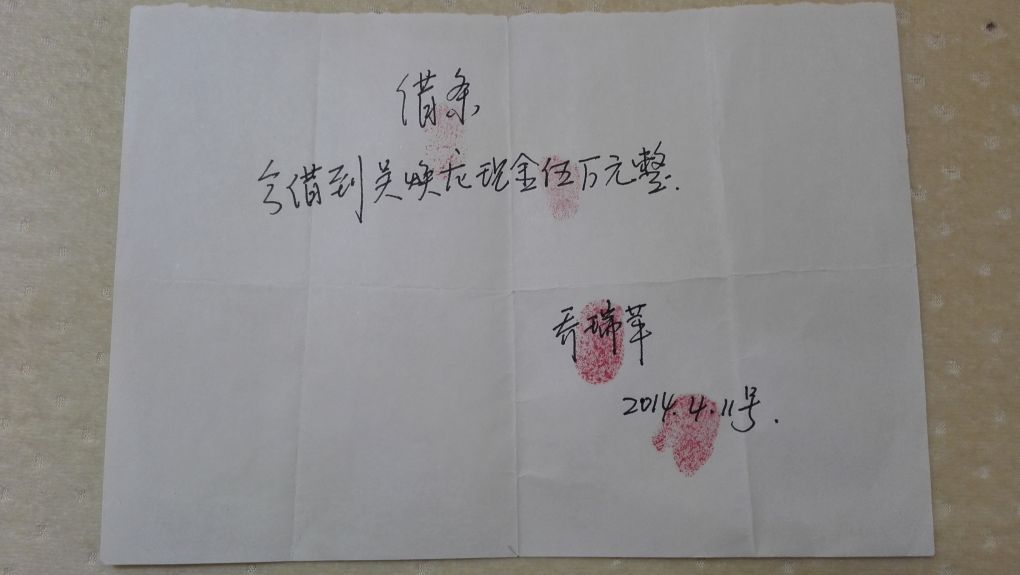 借条
今借到吴焕龙现金伍万元整.
乔瑞苹
2014.4.11号.